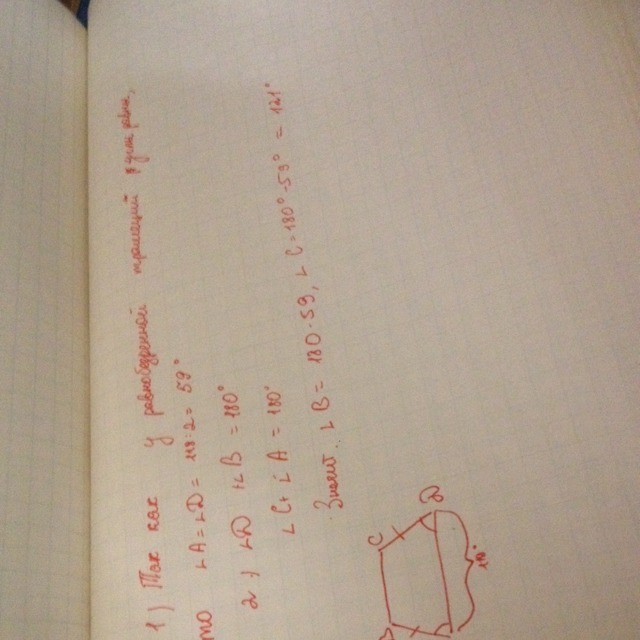 1) Так как у равнобедренной трапеции углы равны,
то ∠A = ∠D = 118:2 = 59°
2) ∠D + ∠B = 180°
∠C + ∠A = 180°
Значит ∠B = 180-59, ∠C = 180°-59° = 121°
C
D